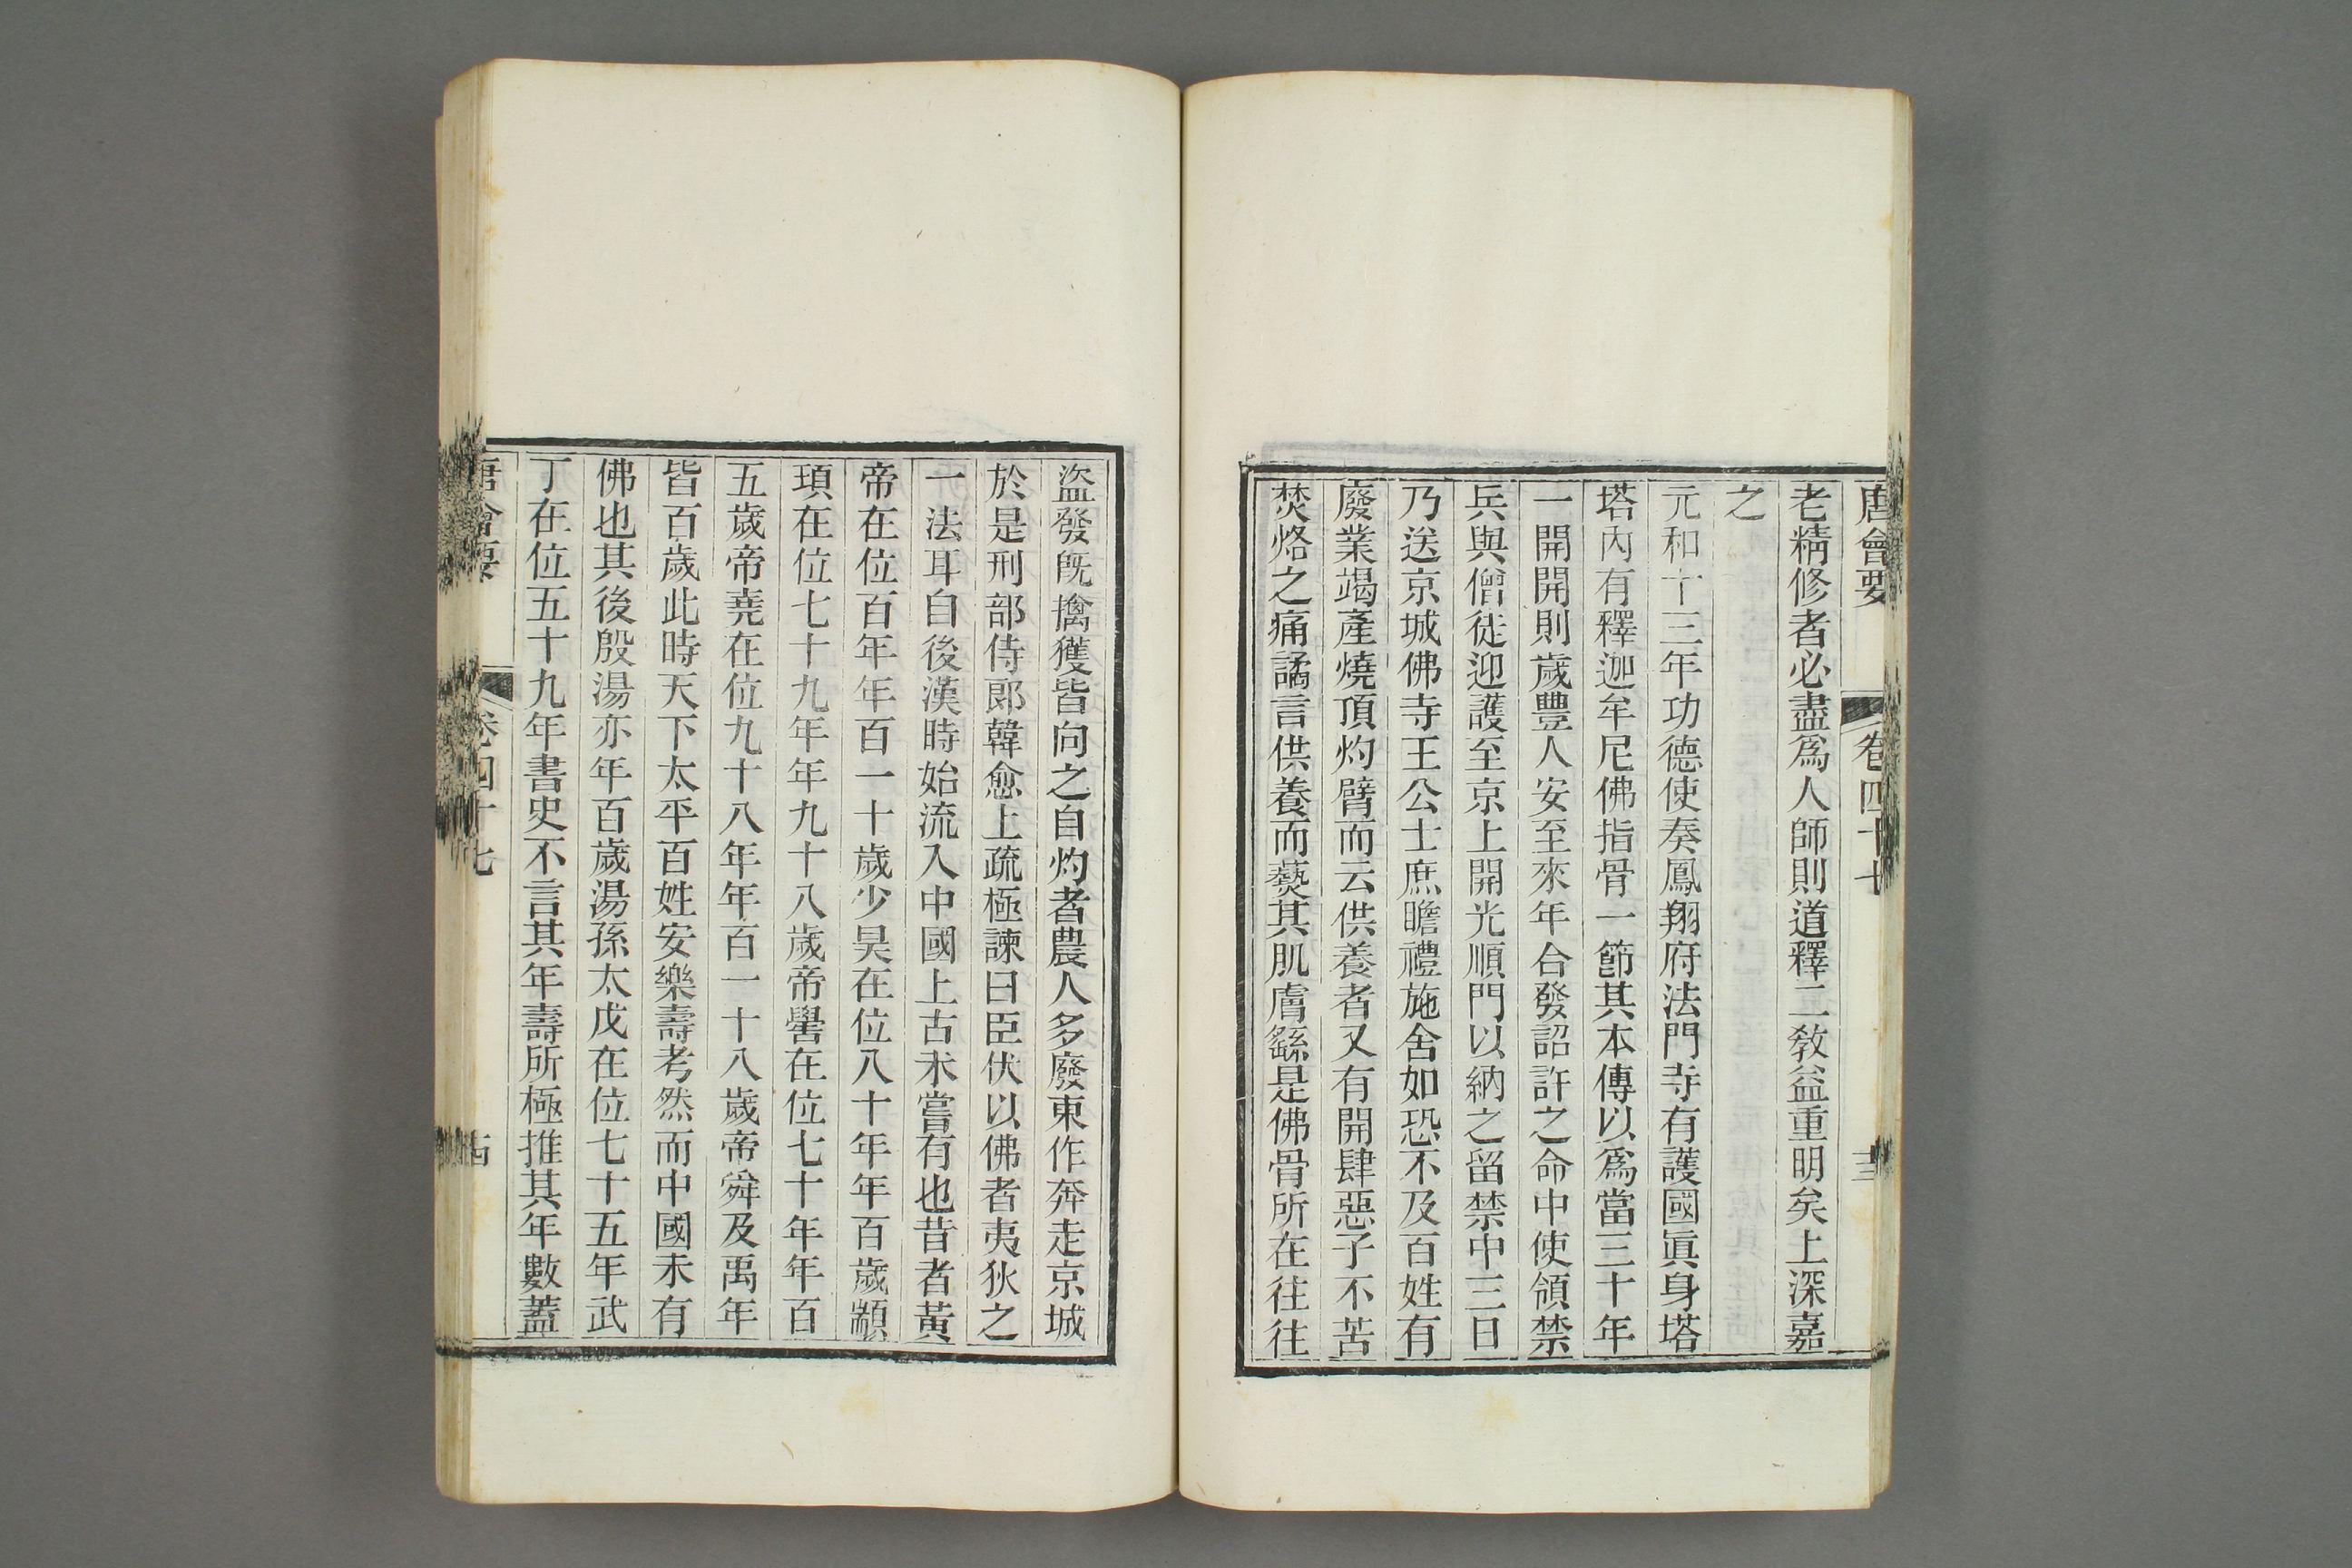 唐會要 卷四十七 十三
老精修者必盡爲人師則道釋二教益重明矣上深嘉
之
元和十三年功德使奏鳳翔府法門寺有護國眞身塔
塔內有釋迦牟尼佛指骨一節其本傳以爲當三十年
一開開則歲豐人安至來年合發詔許之命中使領禁
兵與僧徒迎護至京上開光順門以納之留禁中三日
乃送京城佛寺王公士庶瞻禮施舍如恐不及百姓有
廢業竭產燒頂灼臂而云供養者又有開肆惡子不苦
焚烙之痛譎言供養而爇其肌膚繇是佛骨所在往往
盜發旣擒獲皆向之自灼者農人多廢東作奔走京城
於是刑部侍郞韓愈上疏極諫曰臣伏以佛者夷狄之
一法耳自後漢時始流入中國上古未嘗有也昔者黃
帝在位百年年百一十歲少昊在位八十年年百歲顓
頊在位七十九年年九十八歲帝嚳在位七十年年百
五歲帝堯在位九十八年年百一十八歲帝舜及禹年
皆百歲此時天下太平百姓安樂壽考然而中國未有
佛也其後殷湯亦年百歲湯孫太戊在位七十五年武
丁在位五十九年書史不言其年壽所極推其年數蓋
唐會要 卷四十七 十四